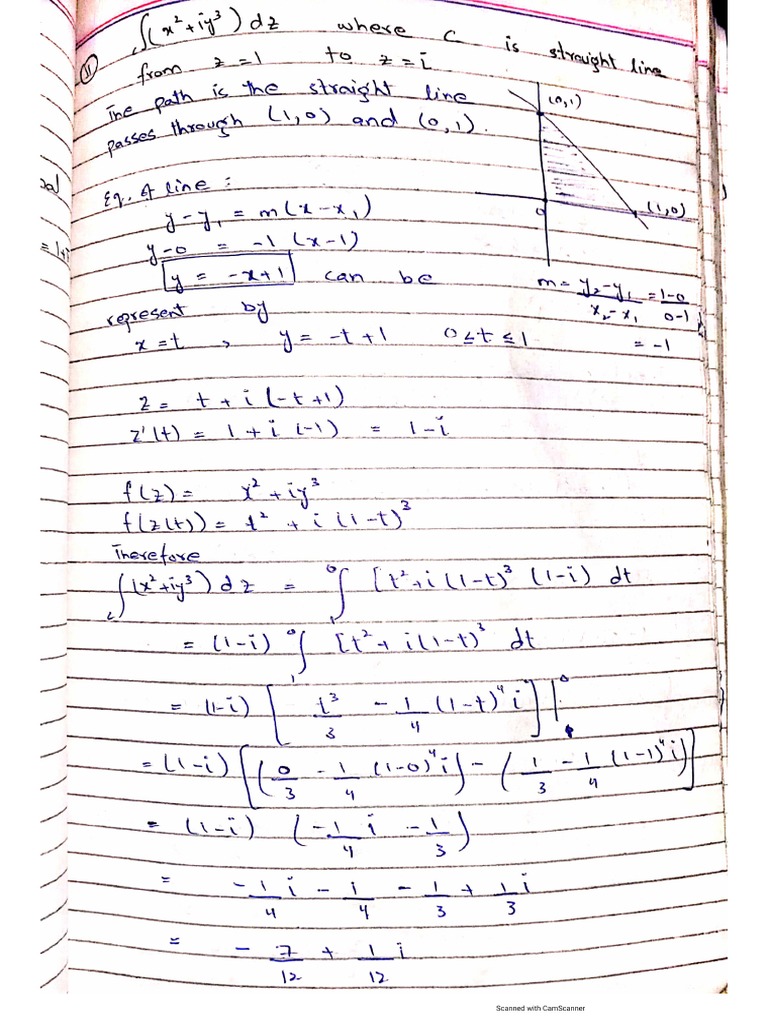 (11) ∫_c (x² + iy³) dz where C is straight line
from z=1 to z=i
The path is the straight line
passes through (1,0) and (0,1).
(0,1)
0
(1,0)
Eq. of line:
y - y₁ = m(x - x₁)
y - 0 = -1 (x-1)
y = -x+1 can be
represent by
x = t , y = -t + 1 0 ≤ t ≤ 1
m = (y₂-y₁)/(x₂-x₁) = (1-0)/(0-1)
= -1
z = t + i (-t+1)
z'(t) = 1 + i (-1) = 1-i
f(z) = x² + iy³
f(z(t)) = t² + i (1-t)³
Therefore
∫_c (x²+iy³) dz = ∫₁⁰ [t² + i (1-t)³ (1-i) dt
= (1-i) ∫₁⁰ [t² + i(1-t)³ dt
= (1-i) [ t³/3 - 1/4 (1-t)⁴ i ] |₁⁰
= (1-i) [ (0/3 - 1/4 (1-0)⁴ i) - (1/3 - 1/4 (1-1)⁴ i) ]
= (1-i) (-1/4 i - 1/3)
= -1/4 i - i/4 - 1/3 + 1/3 i
= - 7/12 + 1/12 i
Scanned with CamScanner